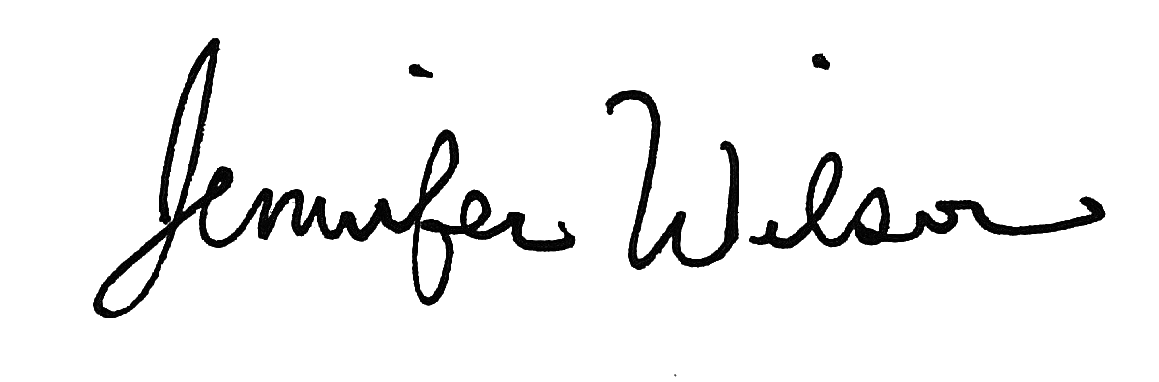 Jennifer Wilson